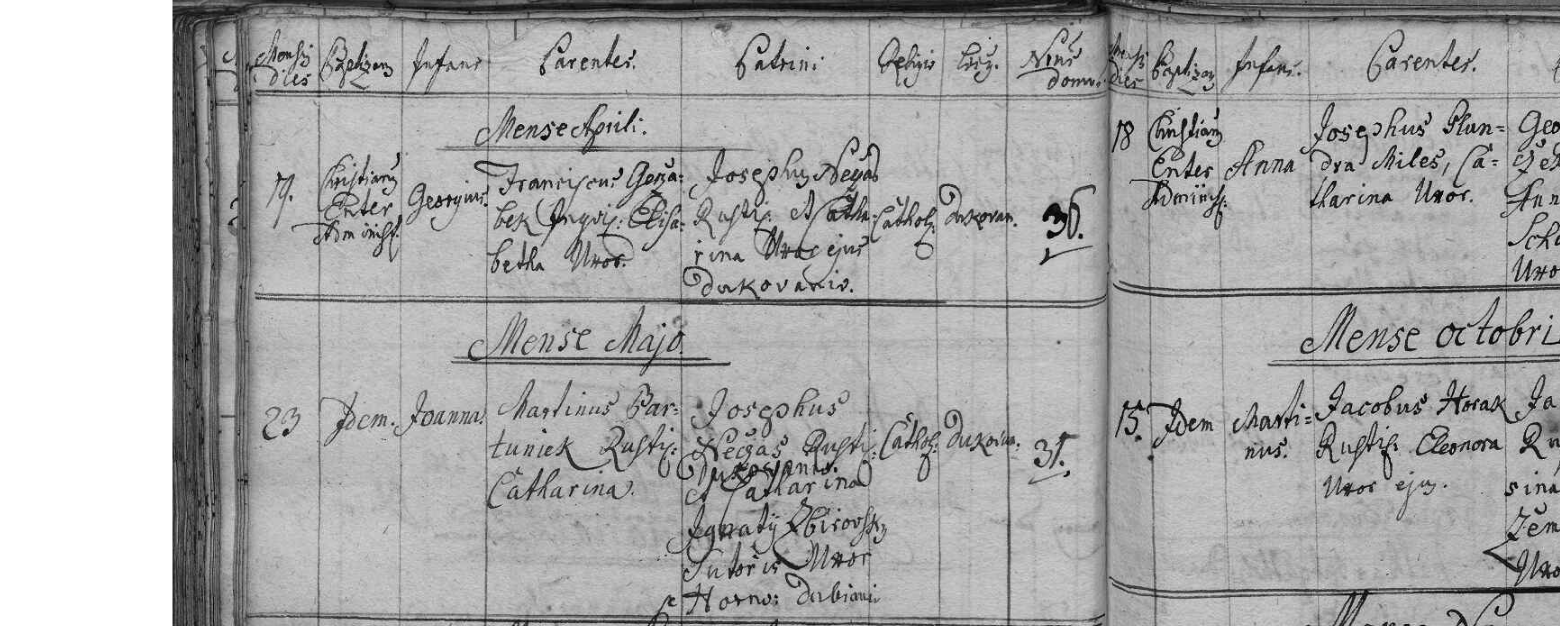 Mensis dies Baptizans Infans Parentes. Patrini Religio Locg. Nrus domus
Mense Aprili.
19.
Christiang
Enter
Administ.
Georgius.
Franciscus Goža-
bek Inqvi: Elisa-
betha Uxor.
Josephg Nečas
Rusti: et Catha-
rina Uxor ejus
Dukovanis.
Cathol: Dukovan. 36.
Mense Majo
23 Idem. Joanna.
Martinus Bar-
tuniek Rusti:
Catharina.
Josephus
Nečas Rusti:
Dukovanis.
et Catharina
Ignatij Zbirovsky
Sutoris Uxor
Horno: Dubiani
Cathol: Dukovan. 35.
dies Baptizans Infans. Parentes.
18
Christiang
Enter
Administ.
Anna
Josephus Plun-
dra Miles, Ca-
tharina Uxor.
Geo
Ann
Scho
Uxo
Mense octobri
15. Idem Marti-
nus.
Jacobus Horak
Rusti: Eleonora
Uxor ejus.
Ja
Ru
sina
Zem
Uxo